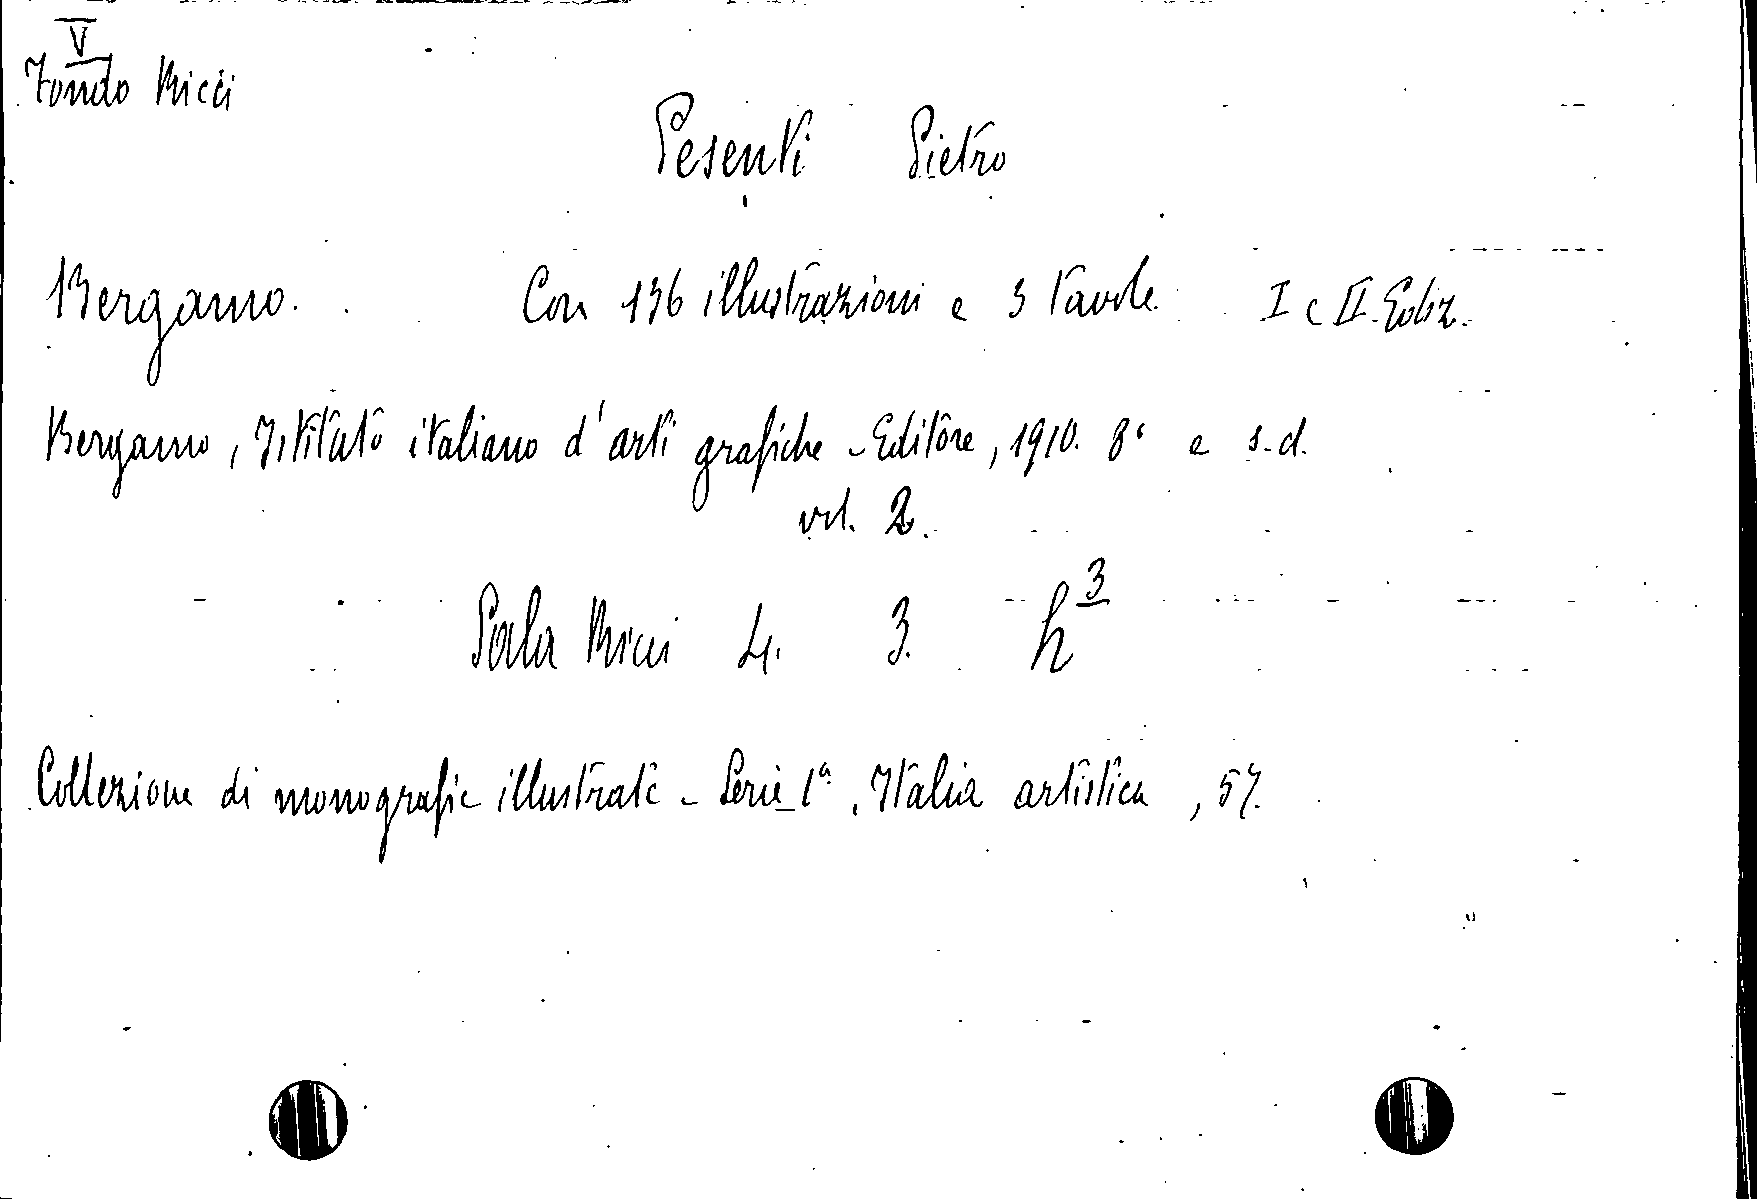 V
Fondo Ricci
Pesenti Pietro
Bergamo. Con 136 illustrazioni e 3 tavole. I e II Ediz.
Bergamo, Istituto italiano d'arti grafiche - Editore, 1910. 8° e s.d.
vol. 2.
Sala Ricci 4. 3. h3
Collezione di monografie illustrate - Serie 1a, Italia artistica, 57.